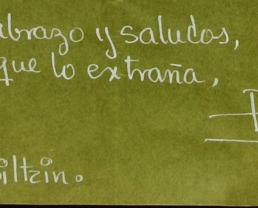 abrazo y saludos,
que lo extraña,
iltzin.